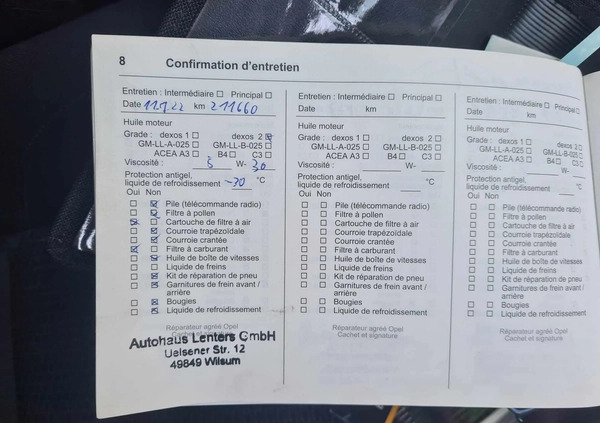 8 Confirmation d'entretien
Entretien : Intermédiaire Principal
Date 11.7.22 km 211660
Huile moteur
Grade : dexos 1 dexos 2
GM-LL-A-025 GM-LL-B-025
ACEA A3 B4 C3
Viscosité : 5 W- 30
Protection antigel,
liquide de refroidissement -30 °C
Oui Non
Pile (télécommande radio)
Filtre à pollen
Cartouche de filtre à air
Courroie trapézoïdale
Courroie crantée
Filtre à carburant
Huile de boîte de vitesses
Liquide de freins
Kit de réparation de pneu
Garnitures de frein avant /
arrière
Bougies
Liquide de refroidissement
Réparateur agréé Opel
Cachet et signature
Autohaus Lenters GmbH
Uelsener Str. 12
49849 Wilsum
Entretien : Intermédiaire Principal
Date km
Huile moteur
Grade : dexos 1 dexos 2
GM-LL-A-025 GM-LL-B-025
ACEA A3 B4 C3
Viscosité : W-
Protection antigel,
liquide de refroidissement °C
Oui Non
Pile (télécommande radio)
Filtre à pollen
Cartouche de filtre à air
Courroie trapézoïdale
Courroie crantée
Filtre à carburant
Huile de boîte de vitesses
Liquide de freins
Kit de réparation de pneu
Garnitures de frein avant /
arrière
Bougies
Liquide de refroidissement
Réparateur agréé Opel
Cachet et signature
Entretien : Intermédiaire Principal
Date km
Huile moteur
Grade : dexos 1 dexos 2
GM-LL-A-025 GM-LL-B-025
ACEA A3 B4 C3
Viscosité : W-
Protection antigel,
liquide de refroidissement °C
Oui Non
Pile (télécommande radio)
Filtre à pollen
Cartouche de filtre à air
Courroie trapézoïdale
Courroie crantée
Filtre à carburant
Huile de boîte de vitesses
Liquide de freins
Kit de réparation de pneu
Garnitures de frein avant /
arrière
Bougies
Liquide de refroidissement
Réparateur agréé Opel
Cachet et signature